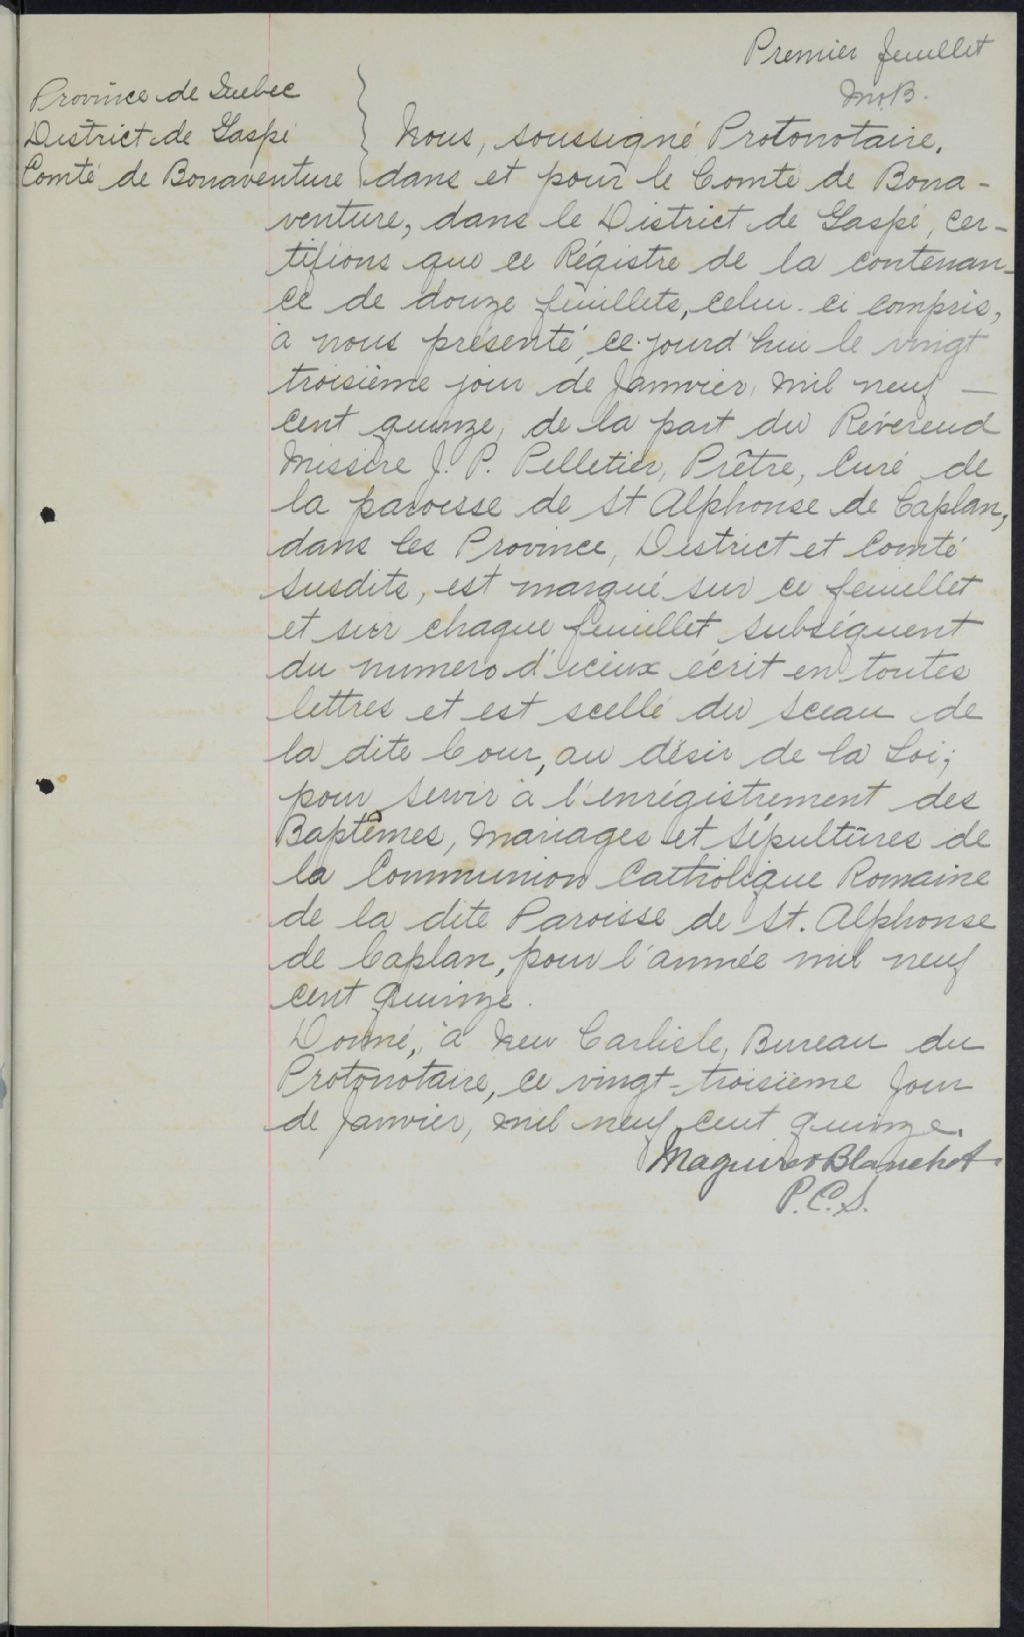 Premier feuillet
M&B.
Province de Quebec
District de Gaspé
Comté de Bonaventure
Nous, soussigné Protonotaire,
dans et pour le Comté de Bona-
venture, dans le District de Gaspé, cer-
tifions que ce Régistre de la contenan-
ce de douze feuillets, celui-ci compris,
à nous présenté, ce jourd'hui le vingt
troisième jour de Janvier, mil neuf —
cent quinze, de la part du Révérend
Messire J. P. Pelletier, Prêtre, Curé de
la paroisse de St Alphonse de Caplan,
dans les Province, District et Comté
susdits, est marqué sur ce feuillet
et sur chaque feuillet subséquent
du numero d'iceux écrit en toutes
lettres et est scellé du sceau de
la dite Cour, au désir de la Loi;
pour servir à l'enrégistrement des
Baptêmes, Mariages et Sépultures de
la Communion Catholique Romaine
de la dite Paroisse de St. Alphonse
de Caplan, pour l'année mil neuf
cent quinze.
Donné, à New Carlisle, Bureau du
Protonotaire, ce vingt-troisième Jour
de Janvier, mil neuf cent quinze.
Maguire & Blanchet
P.C.S.